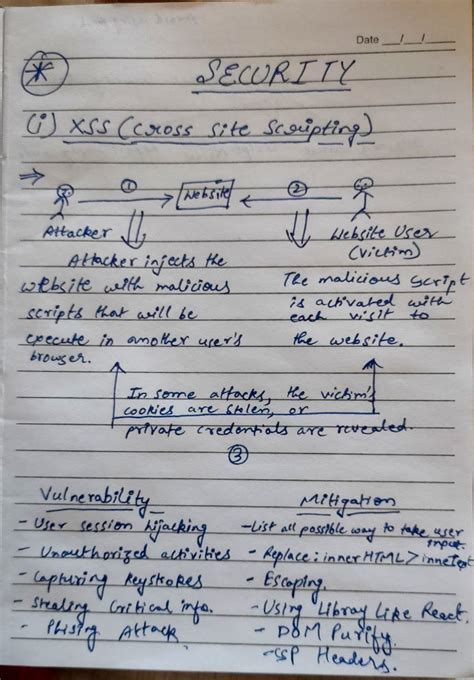 Date __/__/__
* SECURITY
(i) XSS (Cross Site Scripting)
⇒ ① Website ②
Attacker
Website User
(Victim)
Attacker injects the
website with malicious
scripts that will be
execute in another user's
browser.
The malicious script
is activated with
each visit to
the website.
In some attacks, the victim's
cookies are stolen, or
private credentials are revealed.
③
Vulnerability
- User session hijacking
- Unauthorized activities
- Capturing keystrokes
- Stealing Critical info.
- Phising Attack
Mitigation
- List all possible way to take user
input.
- Replace: innerHTML > innerText
- Escaping.
- Using Library Like React.
- DOM Purify.
- CSP Headers.